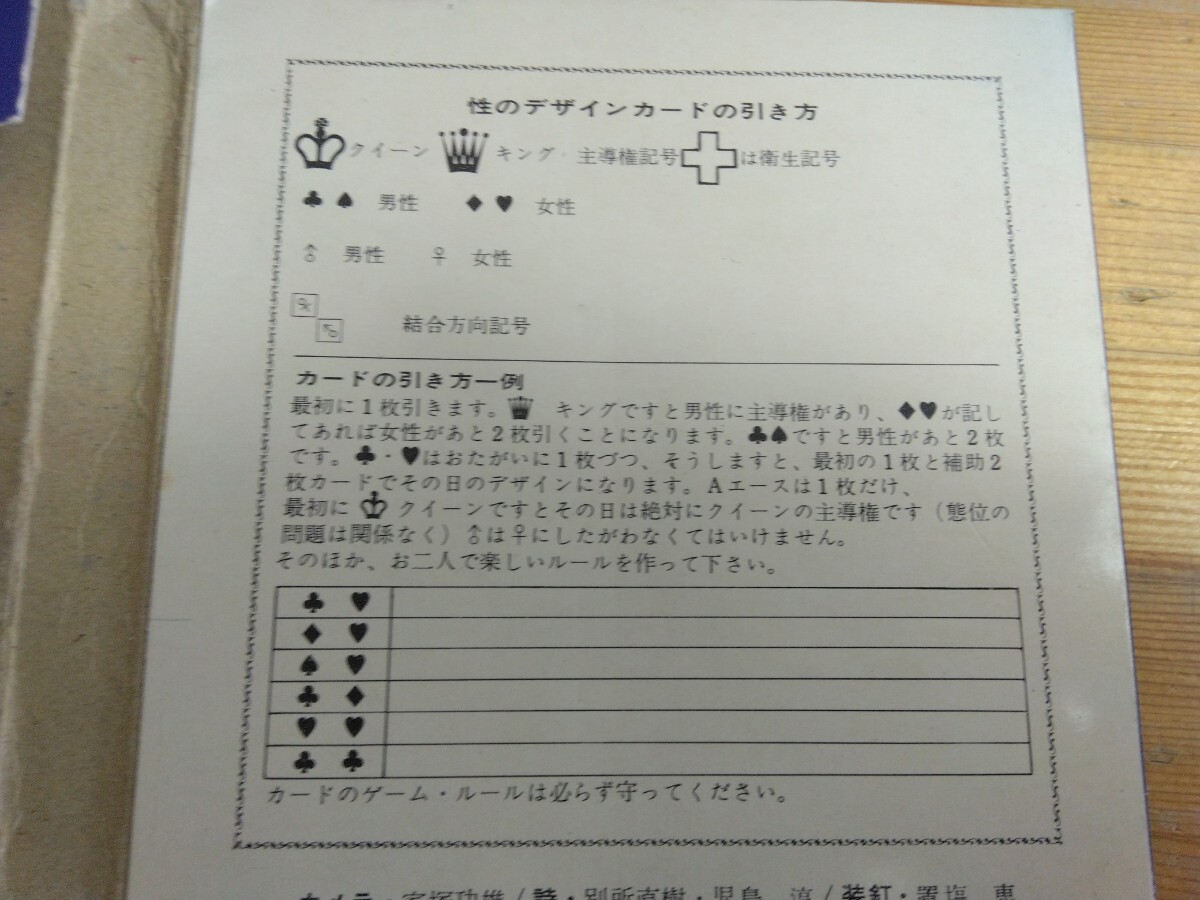 性のデザインカードの引き方
クイーン キング・主導権記号 は衛生記号
♣ ♠ 男性 ♦ ♥ 女性
♂ 男性 ♀ 女性
結合方向記号
カードの引き方一例
最初に1枚引きます。 キングですと男性に主導権があり、♦♥が記し
てあれば女性があと2枚引くことになります。♣♠ですと男性があと2枚
です。♣・♥はおたがいに1枚づつ、そうしますと、最初の1枚と補助2
枚カードでその日のデザインになります。Aエースは1枚だけ、
最初に クイーンですとその日は絶対にクイーンの主導権です（態位の
問題は関係なく）♂は♀にしたがわなくてはいけません。
そのほか、お二人で楽しいルールを作って下さい。
♣ ♥
♦ ♥
♠ ♥
♣ ♦
♥ ♥
♣ ♣
カードのゲーム・ルールは必らず守ってください。
別所直樹・児島 / 装釘・置塩